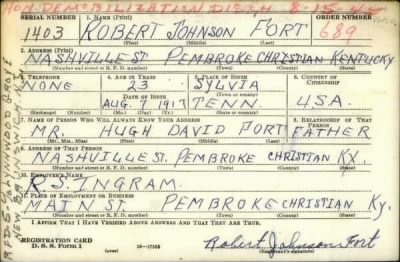 HON. DEMOBILIZATION DISCH. 8-15-44
SERIAL NUMBER 1. NAME (Print) ORDER NUMBER
1403 ROBERT JOHNSON FORT 689
(First) (Middle) (Last)
2. ADDRESS (Print)
NASHVILLE ST. PEMBROKE CHRISTIAN KENTUCKY
(Number and street or R. F. D. number) (Town) (County) (State)
3. TELEPHONE 4. AGE IN YEARS 5. PLACE OF BIRTH 6. COUNTRY OF CITIZENSHIP
NONE 23 SYLVIA
DATE OF BIRTH (Town or county)
AUG. 1 1917 TENN. U.S.A.
(Exchange) (Number) (Mo.) (Day) (Yr.) (State or country)
7. NAME OF PERSON WHO WILL ALWAYS KNOW YOUR ADDRESS 8. RELATIONSHIP OF THAT PERSON
MR. HUGH DAVID FORT FATHER
(Mr., Mrs., Miss) (First) (Middle) (Last)
9. ADDRESS OF THAT PERSON
NASHVILLE ST. PEMBROKE CHRISTIAN KY.
(Number and street or R. F. D. number) (Town) (County) (State)
10. EMPLOYER'S NAME
R. S. INGRAM
11. PLACE OF EMPLOYMENT OR BUSINESS
MAIN ST. PEMBROKE CHRISTIAN KY.
(Number and street or R. F. D. number) (Town) (County) (State)
I AFFIRM THAT I HAVE VERIFIED ABOVE ANSWERS AND THAT THEY ARE TRUE.
REGISTRATION CARD
D. S. S. Form 1 16-17105 Robert Johnson Fort
(Registrant's signature)